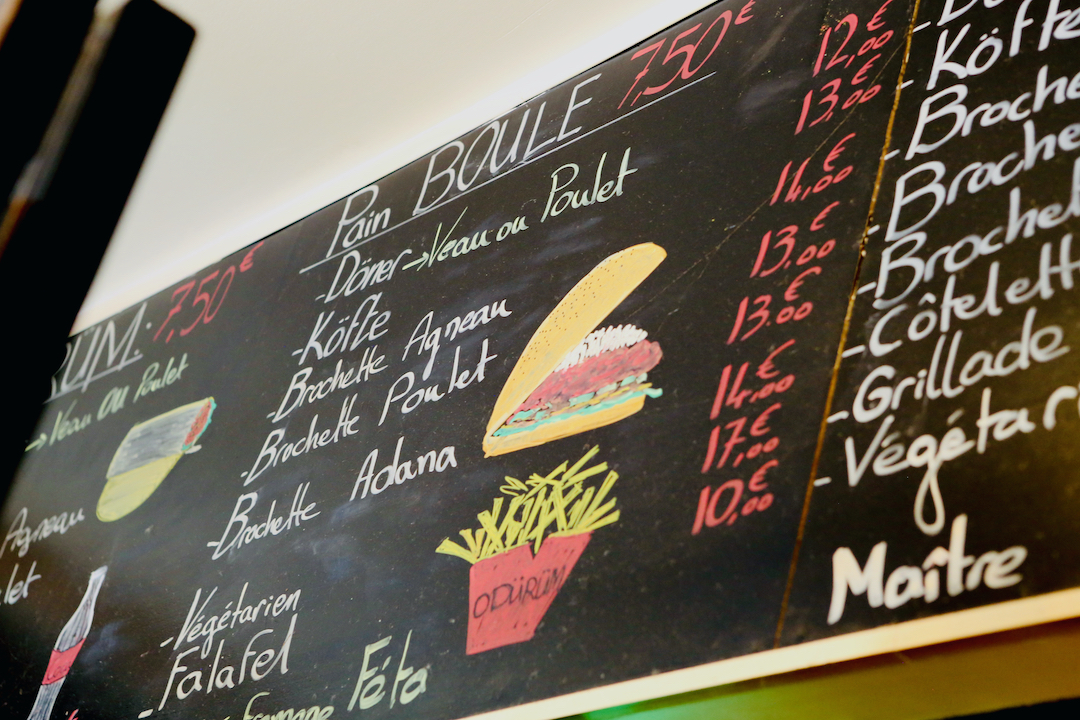 7,50€
Veau ou Poulet
Agneau
Pain BOULE 7,50€
- Döner → Veau ou Poulet
- Köfte
- Brochette Agneau
- Brochette Poulet
- Brochette Adana
- Végétarien
- Falafel
Féta
ODÜRÜM
12,00€
13,00€
14,00€
13,00€
13.00€
14,00€
17,00€
10,00€
- Köfte
- Broche
- Broche
- Brochet
- Côtelett
- Grillade
- Végétari
Maître